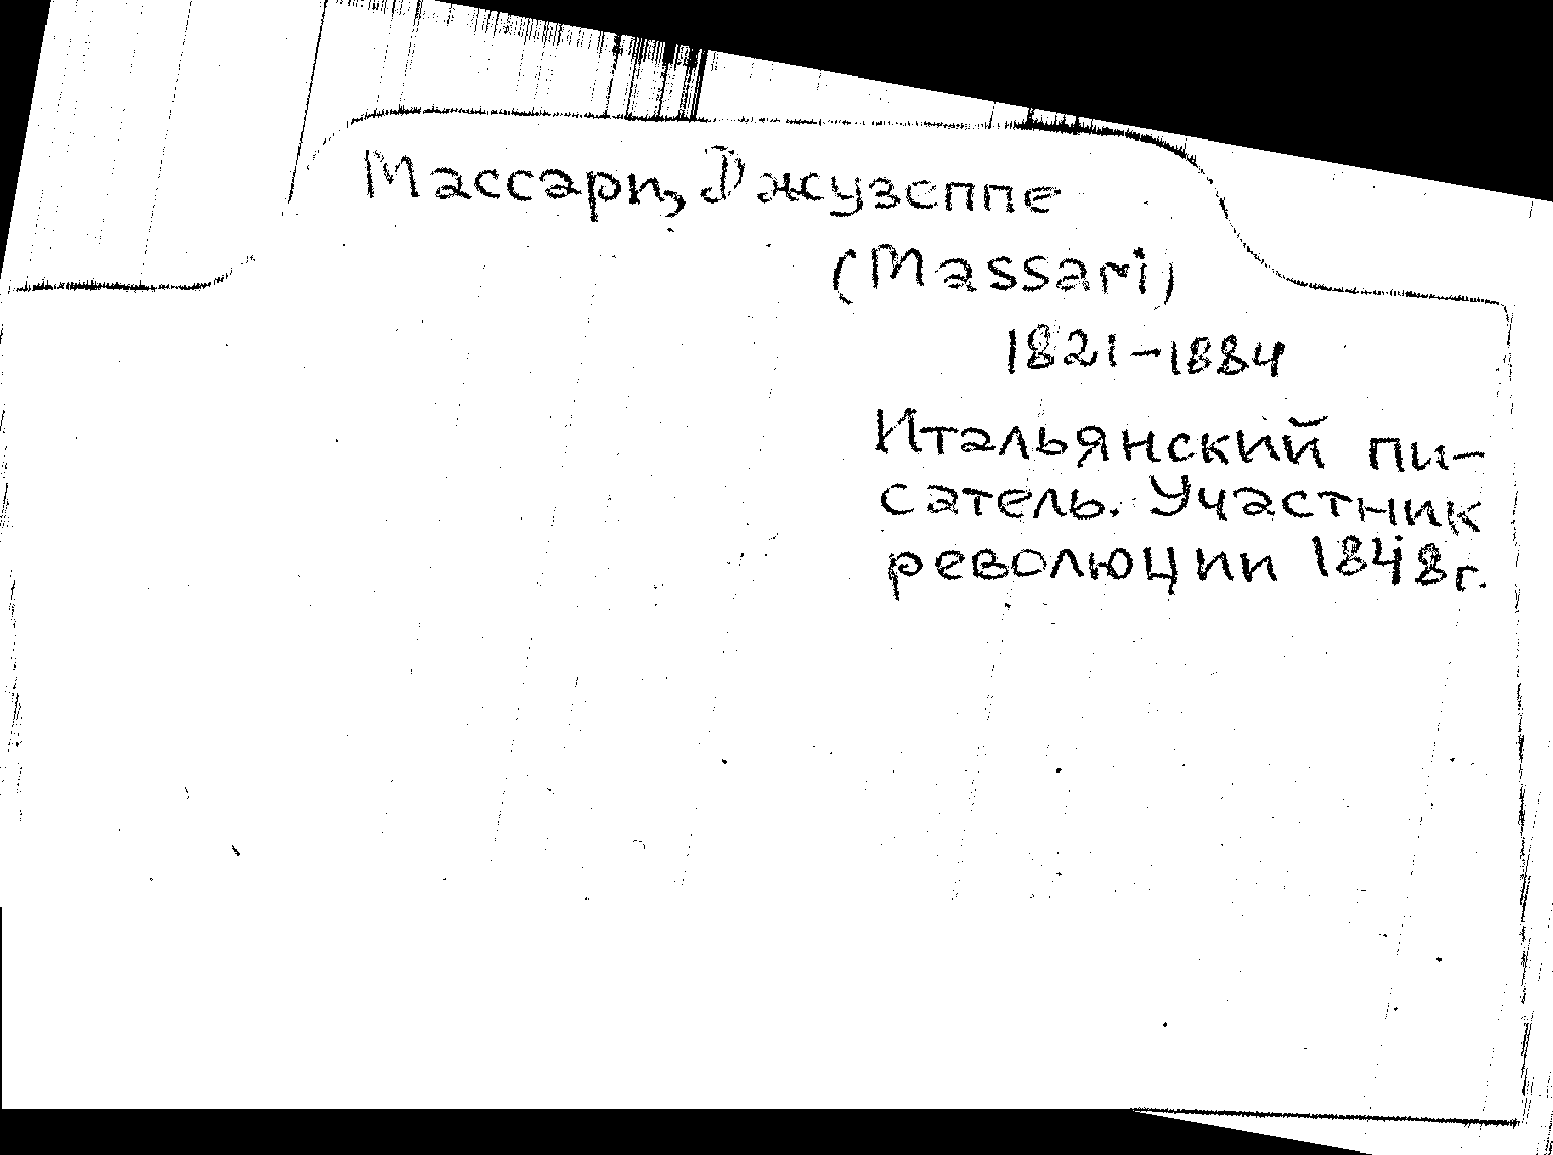 Массари, Джузеппе
(Massari)
1821–1884
Итальянский пи-
сатель. Участник
революции 1848г.